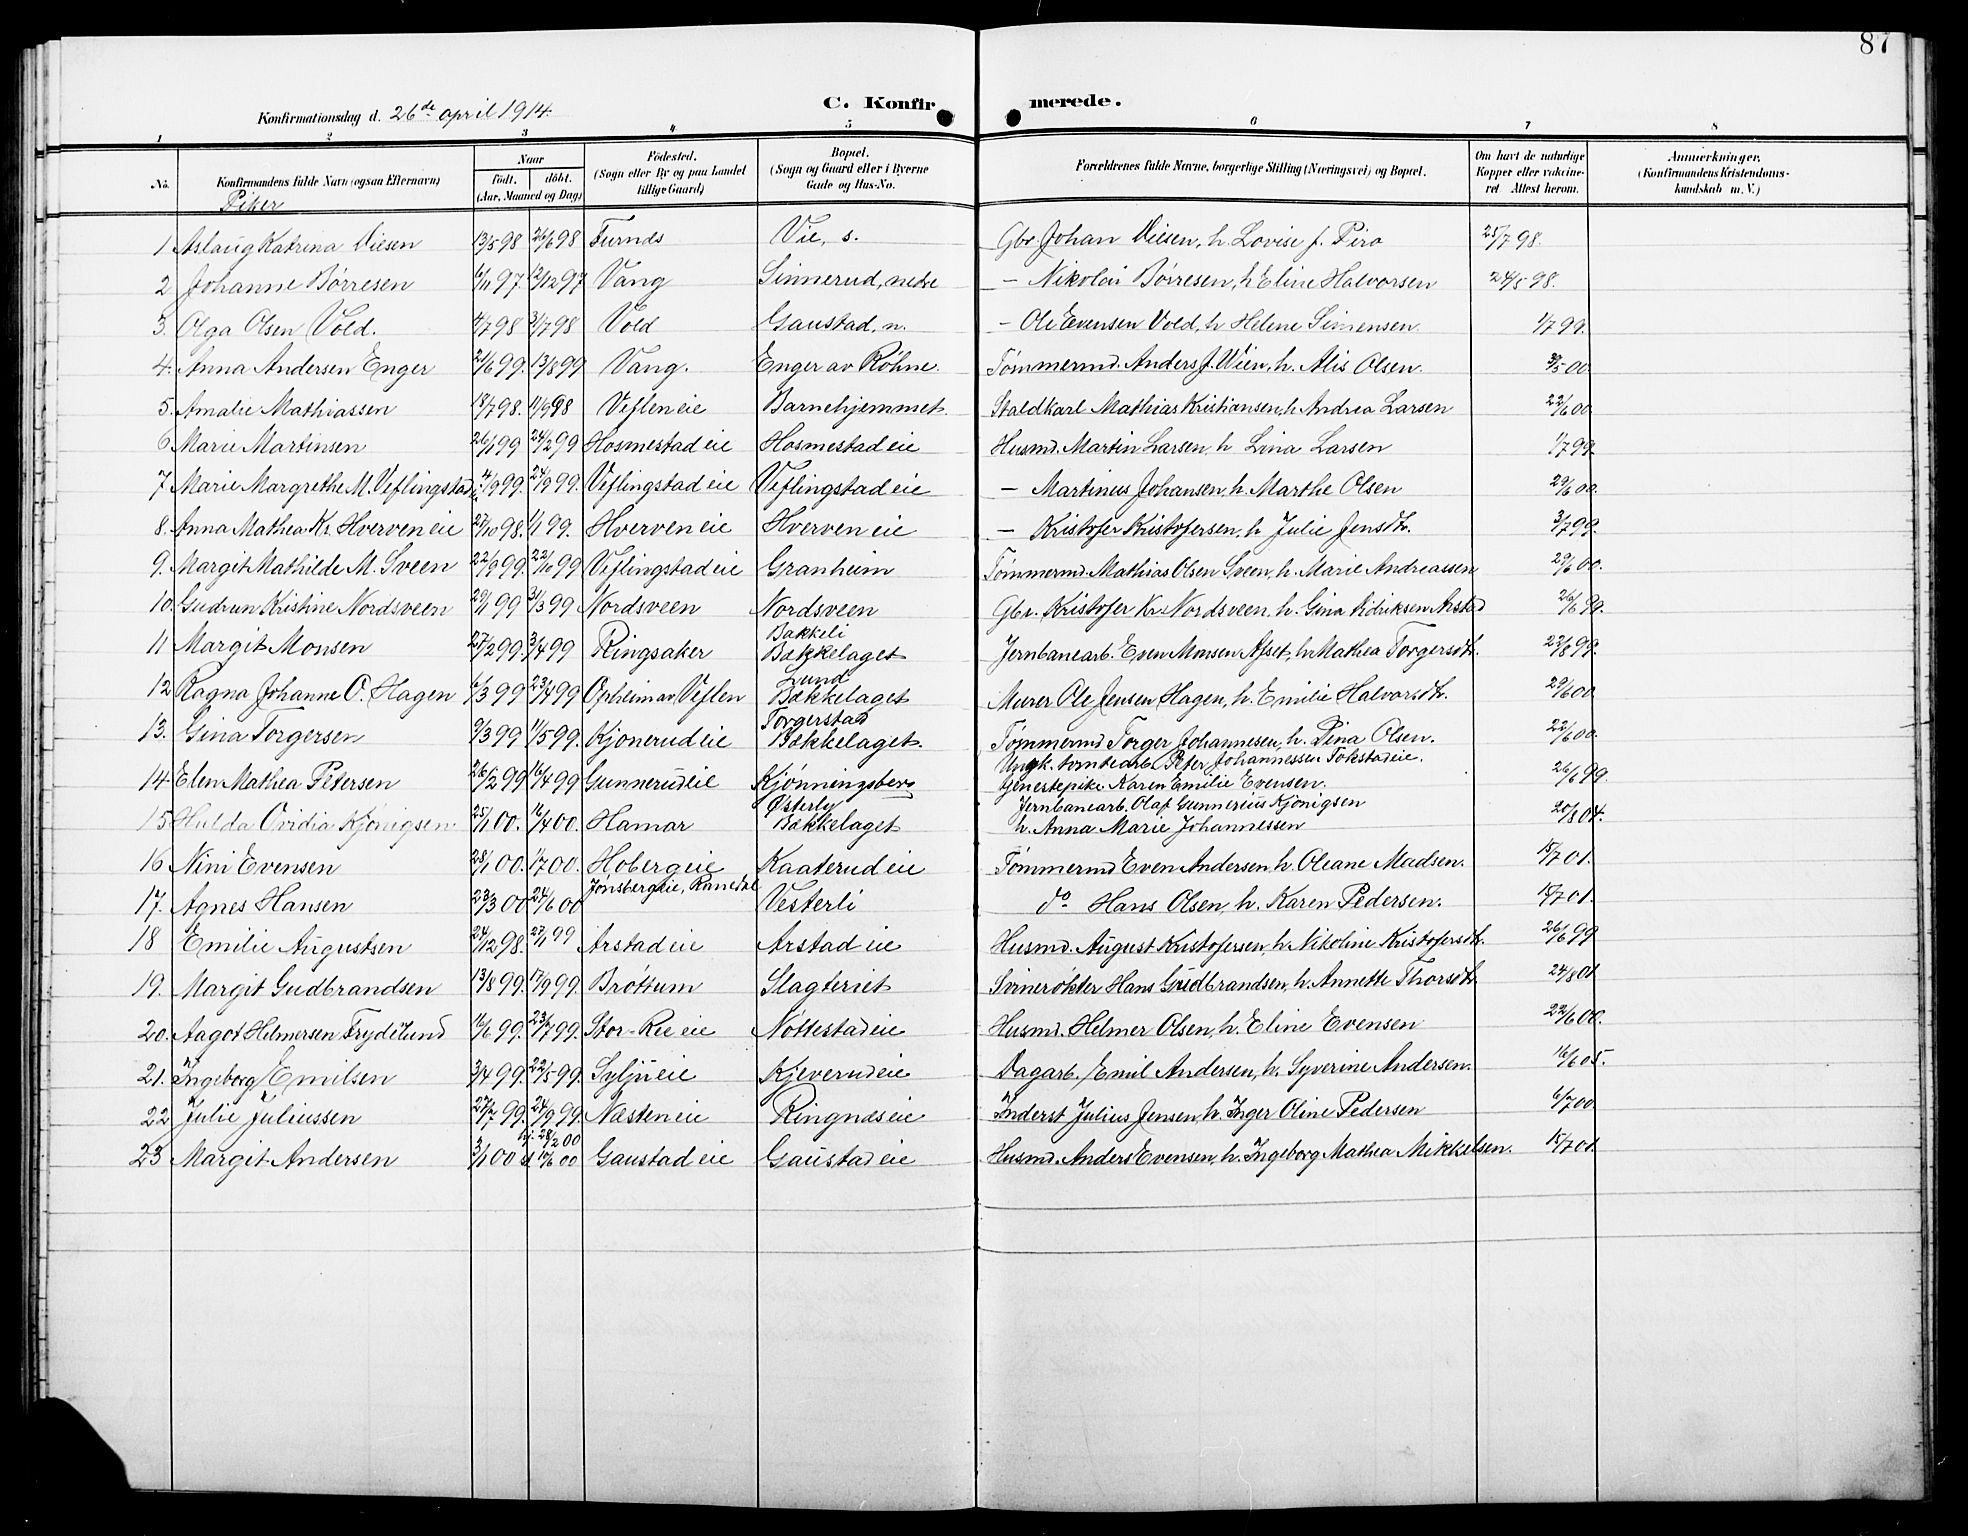 87
C. Konfirmerede.
Konfirmationsdag d. 26de april 1914.
1 2 3 4 5 6 7 8
No. Konfirmandens fulde Navn (ogsaa Efternavn) Naar født. døbt. (Aar, Maaned og Dag) Fødested. (Sogn eller By og paa Landet tillige Gaard) Bopæl. (Sogn og Gaard eller i Byerne Gade og Hus-No. Forældrenes fulde Navne, borgerlige Stilling (Næringsvei) og Bopæl. Om havt de naturlige Kopper eller vaccineret Attest herom. Anmerkninger. (Konfirmandens Kristendomskundskab m. V.)
Piker
1 Aslaug Katrina Viesen 13/5 98 26/6 98 Furnds Vie, s. Gbr. Johan Viesen, h. Lovise f. Piro 25/7 98.
2 Johanne Børresen 6/11 97. 12/12 97 Vang Sinnerud, nedre — Nikolai Børresen, h Eline Halvorsen 24/5 98.
3. Olga Olsen Vold. 4/7 98 31/7 98 Vold Gaustad, n. — Ole Evensen Vold, h Helene Simensen 1/7 99.
4. Anna Andersen Enger 21/6 99. 13/8 99 Vang. Enger av Röhne. Tømmermd. Anders J. Wien, h. Alis Olsen. 30/5 00.
5. Amalie Mathiassen 18/7 98. 11/9 98 Veflen eie Barnehjemmet Staldkarl Mathias Kristiansen, h Andrea Larsen 22/6 00.
6 Marie Martinsen 26/1 99 24/2 99 Hosmestad eie Hosmestad eie Husmd. Martin Larsen, h Lina Larsen 1/7 99
7 Marie Margrethe M. Veflingstad 4/9 99. 24/9 99. Veflingstad eie Veflingstad eie — Martinus Johansen, h. Marthe Olsen 29/6 00.
8. Anna Mathea Kr. Hverven eie 27/10 98. 1/1 99. Hverven eie Hverven eie — Kristofer Kristofersen, h Julie Jensdtr. 3/7 99.
9. Margit Mathilde M. Sveen 22/9 99. 22/10 99 Veflingstad eie Granheim Tømmermd. Mathias Olsen Sveen, h. Marie Andreassen 29/6 00.
10. Gudrun Kristine Nordsveen 29/1 99 31/3 99 Nordsveen Nordsveen Gbr. Kristofer Kr. Nordsveen, h. Gina Arstad 26/6 99.
Bakkeli
11 Margit Monsen 27/2 99. 3/4 99 Ringsaker Bækkelaget Jernbanearb. Even Monsen Afset, h. Mathea Torgersdtr. 22/8 99.
Lund
12 Ragna Johanne O. Hagen 6/3 99 23/4 99 Opheim av Veflen Bækkelaget Murer Ole Jensen Hagen, h. Emilie Halvorsdtr. 29/6 00.
Torgerstad
13. Gina Torgersen 9/3 99 11/5 99. Kjonerud eie Bækkelaget. Tømmermd Torger Johannesen, h. Pina Olsen. 22/6 00.
Ungk. tomtearb. Peter Johannessen Tokstad eie.
14 Elen Mathea Petersen 26/2 99 16/4 99 Gunnerud eie Kjønningsberg Genestepike Karen Emilie Evensen. 26/6 99.
Østerly Jernbanearb. Olaf Gunnerius Kjönigsen
15 Hulda Ovidia Kjönigsen. 25/1 00. 16/4 00. Hamar Bækkelaget h. Anna Marie Johannessen 20/8 04.
16 Nini Evensen 28/1 00. 1/7 00. Hoberg eie Kaaterud eie Tømmermd Even Andersen, h. Oleane Madsen. 15/7 01.
17. Agnes Hansen 23/3 00 24/6 00 Jønsberg eie, Romedal Vesterli do Hans Olsen, h. Karen Pedersen. 15/7 01.
18 Emilie Augustsen 24/12 98. 27/1 99 Arstad eie Arstad eie Husmd. August Kristofersen, h. Nikoline Kristofersdtr. 26/6 99
19. Margit Gudbrandsen 13/8 99. 17/9 99. Brøttum Slagteriet Svinerøkter Hans Gudbrandsen, h. Annette Thorsdtr. 24/8 01
20. Aagot Helmersen Frydelund 16/6 99. 23/7 99. Stor-Ree eie Nøttestad eie Husmd. Helmer Olsen, h. Eline Evensen 22/6 00.
21. Ingeborg Emilsen 3/4 99. 22/5 99. Sylju eie Kjeverud eie Dagarb. Emil Andersen, h. Syverine Andersen. 16/6 05.
22 Julie Juliussen 27/7 99. 24/9 99. Næsten eie Ringnæs eie Inderst Julius Jensen, h. Inger Oline Pedersen 6/7 00
hj. 28/2 00
23 Margit Andersen 3/1 00 10/6 00 Gaustad eie Gaustad eie Husmd. Anders Evensen, h. Ingeborg Mathea Mikkelsen. 15/7 01.